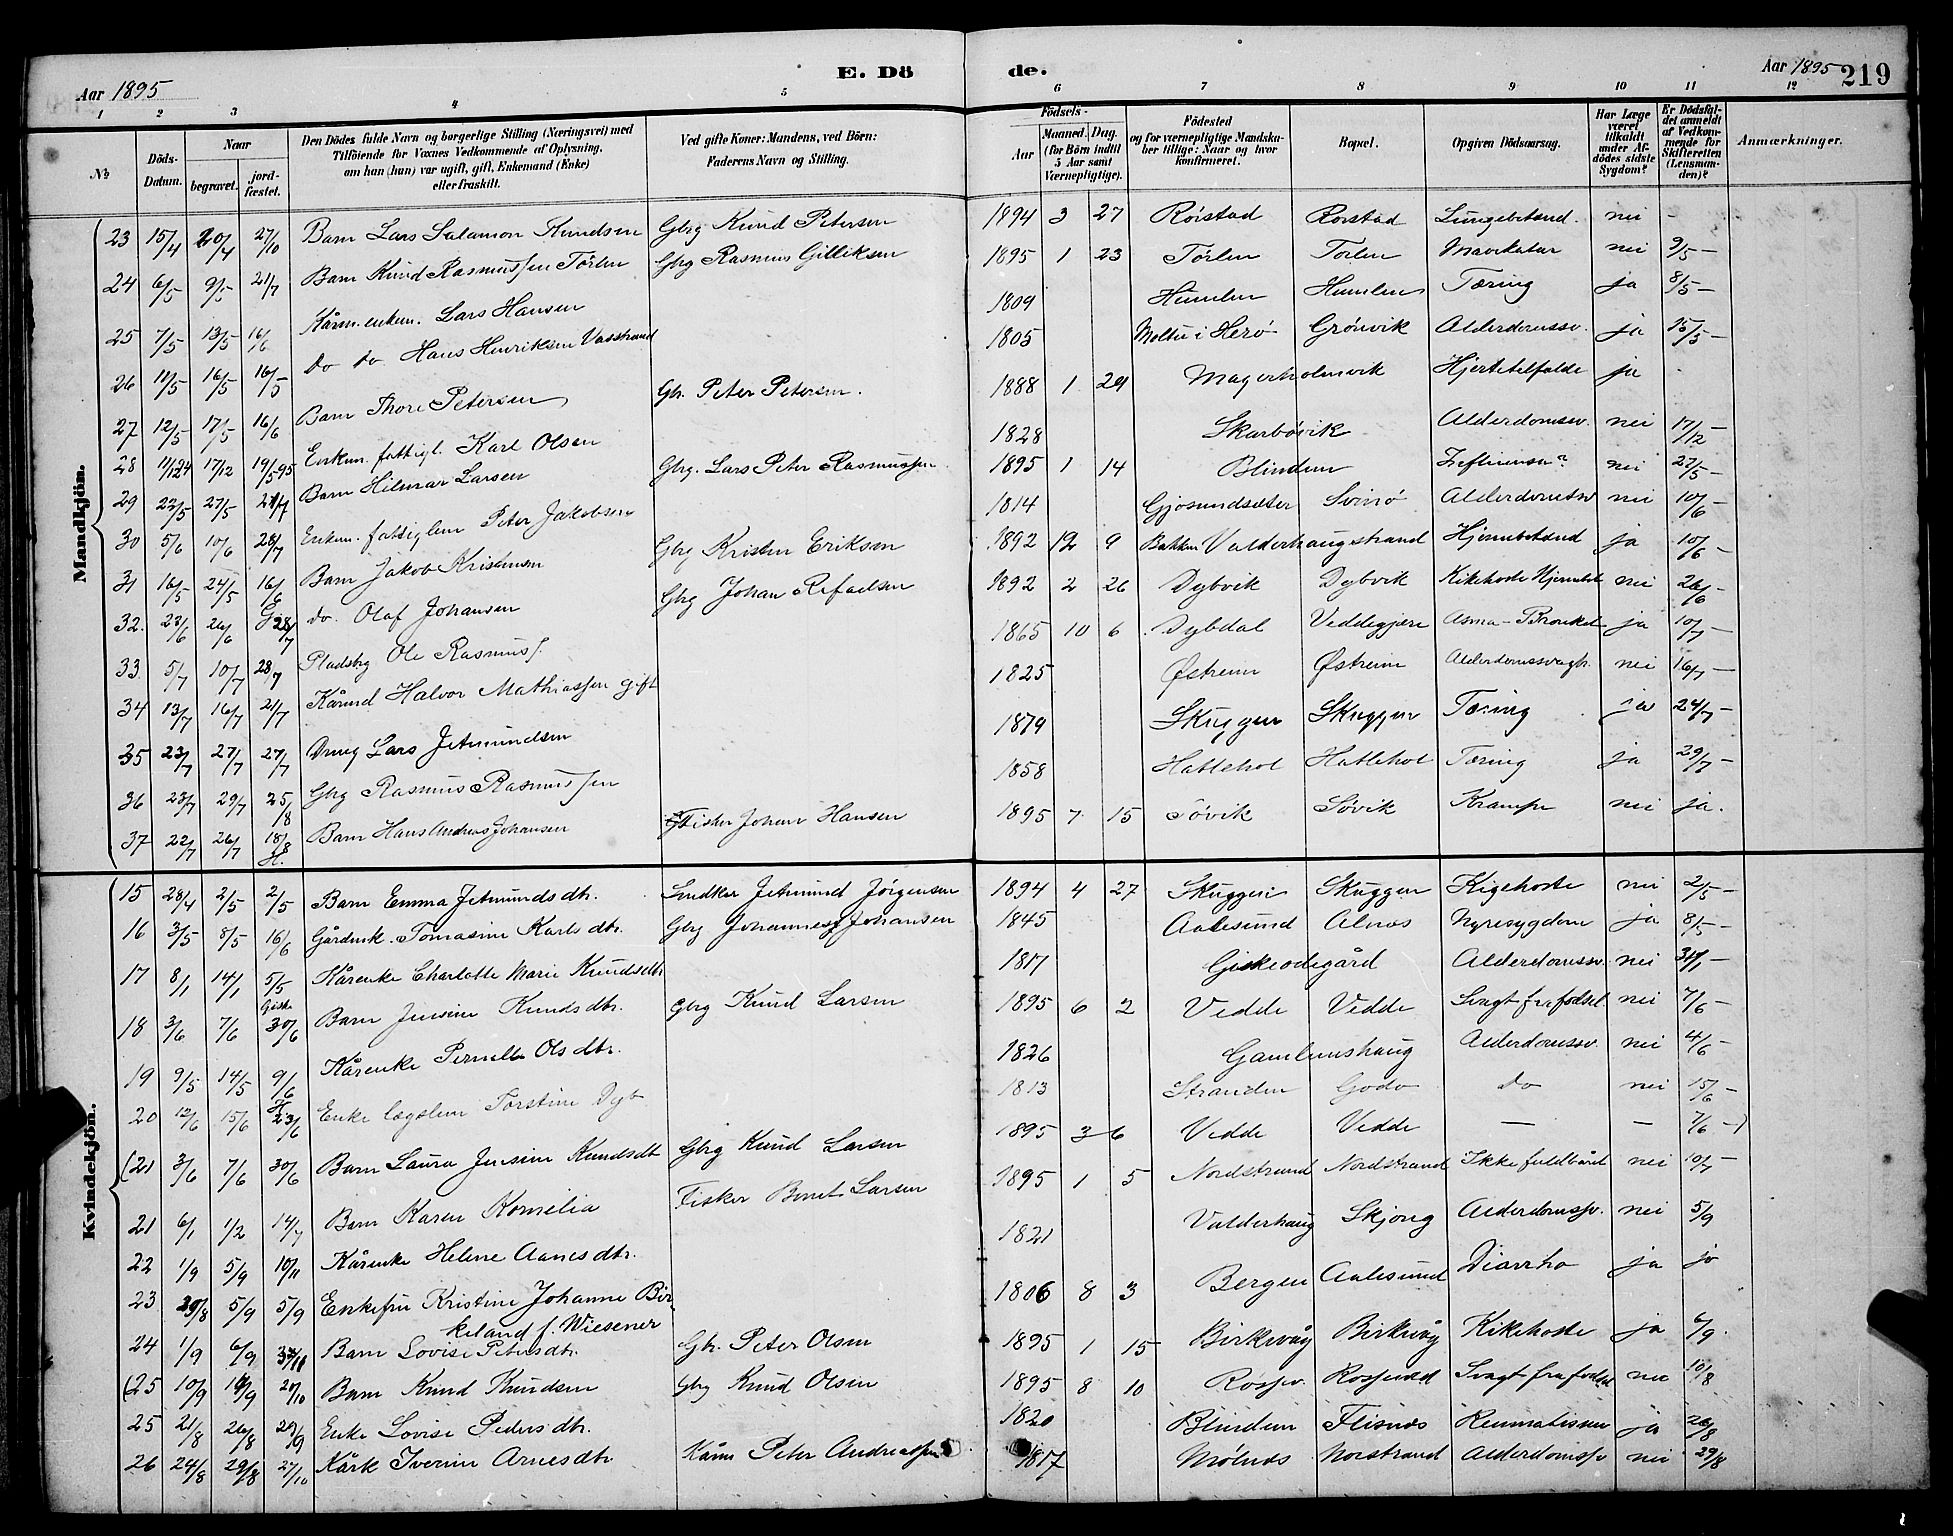 Aar 1895 E. Dö de. Aar 1895 219
1 2 3 4 5 6 7 8 9 10 11 12
№
Döds-Datum.
Naar begravet. jordfæstet.
Den Dödes fulde Navn og borgerlige Stilling (Næringsvei) med Tilföiende for Voxnes Vedkommende af Oplysning, om han (hun) var ugift, gift, Enkemand (Enke) eller fraskilt.
Ved gifte Koner: Mandens, ved Börn: Faderens Navn og Stilling.
Födsels- Aar Maaned. Dag. (for Börn indtil 5 Aar samt Værnepligtige).
Födested og for værnepligtige Mandskaber tillige: Naar og hvor konfirmeret.
Bopæl.
Opgiven Dödsaarsag.
Har Læge været tilkaldt under Afdödes sidste Sygdom?
Er Dödsfaldet anmeldt af Vedkommende for Skifteretten (Lensmanden)?
Anmærkninger.
Mandkjön.
23 15/4 20/4 27/10 Barn Lars Salamon Knudsen Gbrg Knud Petersen 1894 3 27 Rörstad Rorstad Lungebetænd. nei -
24 6/5 9/5 21/7 Barn Knud Rasmussen Törlen Gbrg Rasmus Gilliksen 1895 1 23 Törlen Torlen Mavekatar nei 9/5 -
25 7/5 13/5 16/6 Kårm. enkem. Lars Hansen 1809 Humlen Humlen Tæring ja 8/5 -
26 11/5 16/5 16/5 do do Hans Henriksen Vasstrand 1805 Moltu i Herö Grönvik Alderdomssv. ja 15/5 -
27 12/5 17/5 16/6 Barn Thore Petersen Gbr. Peter Petersen. 1888 1 29 Magerholmvik Hjertetilfælde ja
28 11/12 94 17/12 19/5 95 Enkem. fattigl. Karl Olsen 1828 Skarbövik Alderdomssv. nei 17/12 -
29 22/5 27/5 21/7 Barn Hilmar Larsen Gbrg. Lars Peter Rasmussen 1895 1 14 Blindem nei 27/5 -
30 5/6 10/6 28/7 Enkem. fattiglem Peter Jakobsen 1814 Gjösundsæter Svinö Alderdomssv nei 10/6 -
31 16/5 24/5 16/6 Barn Jakob Kristensen Gbrg Kristen Eriksen 1892 12 9 Bakken Valderhaugstrand Hjernebetænd ja 10/6 -
32. 23/6 26/6 G 28/7 do. Olaf Johansen Gbrg Johan Refaelsen 1892 2 26 Dybvik Dybvik Kikehoste Hjernebet nei 26/6 -
33 5/7 10/7 28/7 Pladsbrg Ole Rasmuss. 1865 10 6 Dybdal Veddegjære Asma-Bronket ja 10/7 -
34 13/7 16/7 21/7 Kårmd Halvor Mathiassen gift 1825 Østreim Østreim Alderdomssvagh. nei 16/7 -
35 23/7 27/7 27/7 Dreng Lars Jetmundsen 1879 Skuggen Skuggen Tæring ja 24/7 -
36 23/7 29/7 25/8 Gbrg Rasmus Rasmussen 1858 Hatlehol Hatlehol Tæring ja 29/7 -
37 22/7 26/7 18/8 H. Barn Hans Andreas Johansen Fisker Johan Hansen 1895 7 15 Sövik Sövik Krampe nei ja.
Kvindekjön.
15 28/4 2/5 2/5 Barn Emma Jetmundsdtr. Snedker Jetmund Jörgensen 1894 4 27 Skuggen Skuggen Kigehoste nei 2/5 -
16 3/5 8/5 16/6 Gårdmk. Tomasine Karlsdtr. Gbrg Johannes Johansen 1845 Aalesund Alnæs Nyresygdom ja 8/5 -
17 8/1 14/1 5/5 Kårenke Charlotte Marie Knudsdtr 1817 Giskeødegård Alderdomssv. nei
18 3/6 7/6 Giske 30/6 Barn Jensine Knudsdtr. Gbrg Knud Larsen 1895 6 2 Vedde Vedde Svagt fra födsel nei 7/6 -
19 9/5 14/5 9/6 Kårenke Pernelle Olsdtr. 1826 Gamlemshaug Alderdomssv. nei 4/6 -
20 12/6 15/6 H. 23/6 Enke lægdslem Torstine Dyb 1813 Stranden Godö Do nei 15/6 -
(21 3/6 7/6 30/6 Barn Laura Jensine Knudsdtr Gbrg Knud Larsen 1895 3 - 6 Vedde Vedde — — 7/6 -)
21 6/1 1/2 14/7 Barn Karen Kornelia Fisker Bernt Larsen 1895 1 5 Nordstrand Nordstrand Ikke fuldbåret nei 10/7 -
22 1/9 5/9 10/11 Kårenke Helene Aanesdtr. 1821 Valderhaug Skjong Alderdomssv. nei 5/9
23 29/8 5/9 5/9 Enkefru Kristine Johanne Bir-
keland f. Wiesener 1806 8 3 Bergen Aalesund Diarrho ja ja
24 1/9 6/9 Barn Lovise Petersdtr. Gbr. Peter Olsen 1895 1 15 Birkevåg Birkevåg Kikehoste ja 6/9.
(25 10/9 14/9 20/10 Barn Knud Knudsen Gbrg Knud Olsen 1895 8 10 Rossev. Svagt fra födsel nei 10/8
25 21/8 26/8 29/9 Enke Lovise Pedersdtr. 1820 Blindem Flisnæs Reumatisme ja 26/8
26 24/8 29/8 27/10 Kårk Iverine Arnesdtr Kårm Peter Andreassen 1817 Mölnæs Norstrand Alderdomssv nei 29/8